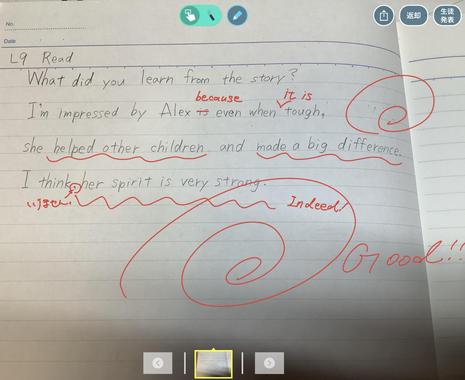 返却
生徒
発表
No.
Date
L9 Read
What did you learn from the story?
because it is
I'm impressed by Alex is even when tough,
she helped other children and made a big difference.
I think, her spirit is very strong.
いりません! Indeed!
Good!!